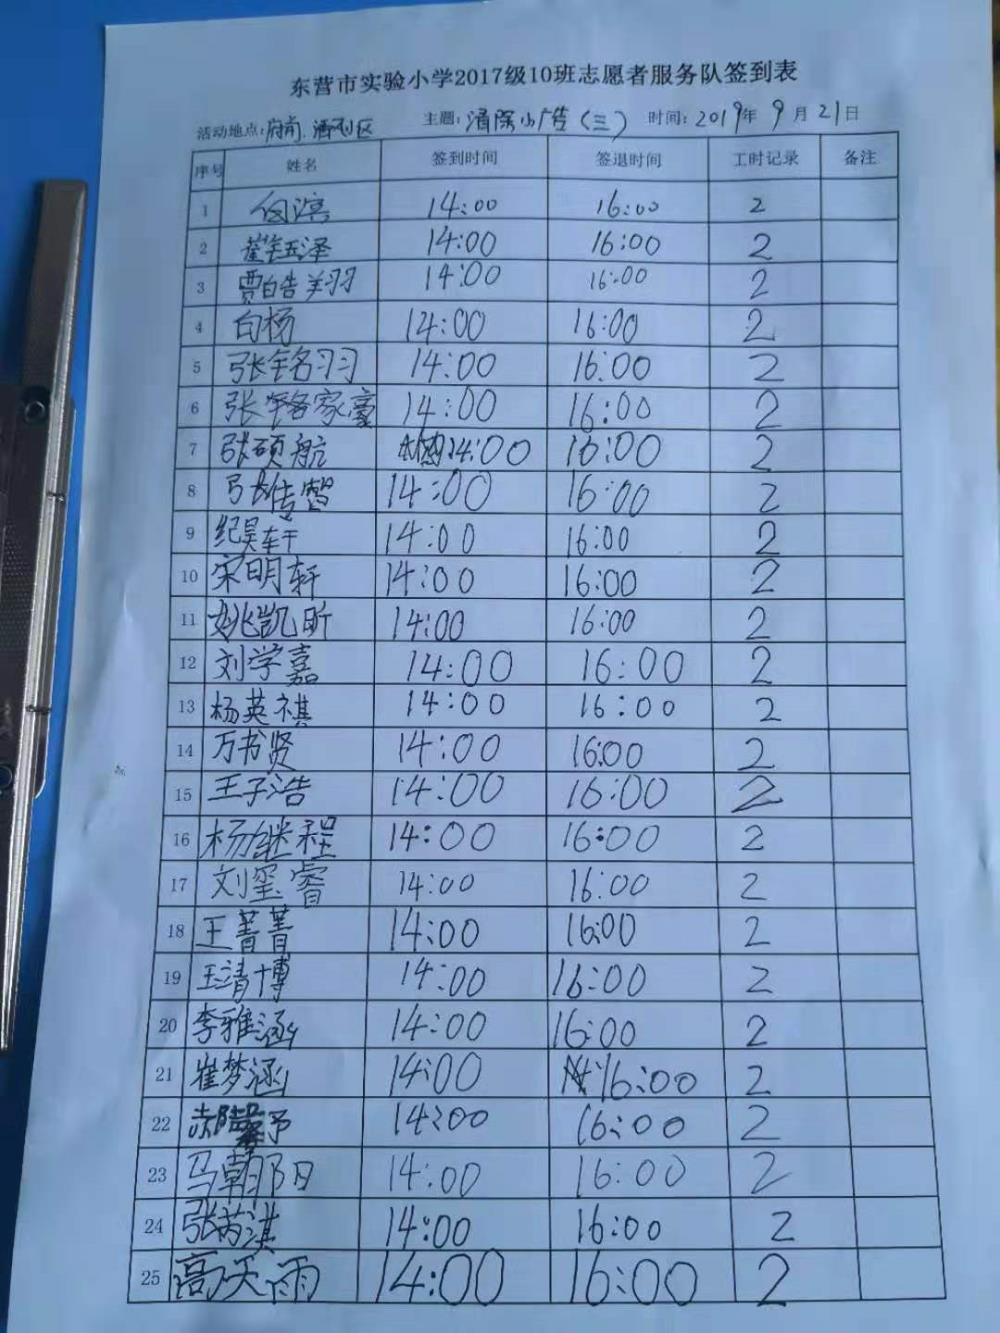 东营市实验小学2017级10班志愿者服务队签到表
活动地点:府前. 区 主题:清除小广告(三) 时间:2019年9月21日
序号 姓名 签到时间 签退时间 工时记录 备注
1 14:00 16:00 2
2 崔钰泽 14:00 16:00 2
3 贾皓翔 14:00 16:00 2
4 白杨 14:00 16:00 2
5 张铭习习 14:00 16:00 2
6 张 家豪 14:00 16:00 2
7 张硕航 14:00 16:00 2
8 张传智 14:00 16:00 2
9 纪昊轩 14:00 16:00 2
10 宋明轩 14:00 16:00 2
11 姚凯昕 14:00 16:00 2
12 刘学嘉 14:00 16:00 2
13 杨英祺 14:00 16:00 2
14 万书贤 14:00 16:00 2
15 王子浩 14:00 16:00 2
16 杨继程 14:00 16:00 2
17 刘玺睿 14:00 16:00 2
18 王菁菁 14:00 16:00 2
19 王清博 14:00 16:00 2
20 李雅涵 14:00 16:00 2
21 崔梦涵 14:00 16:00 2
22 14:00 16:00 2
23 马朝阳 14:00 16:00 2
24 张芮淇 14:00 16:00 2
25 高天雨 14:00 16:00 2